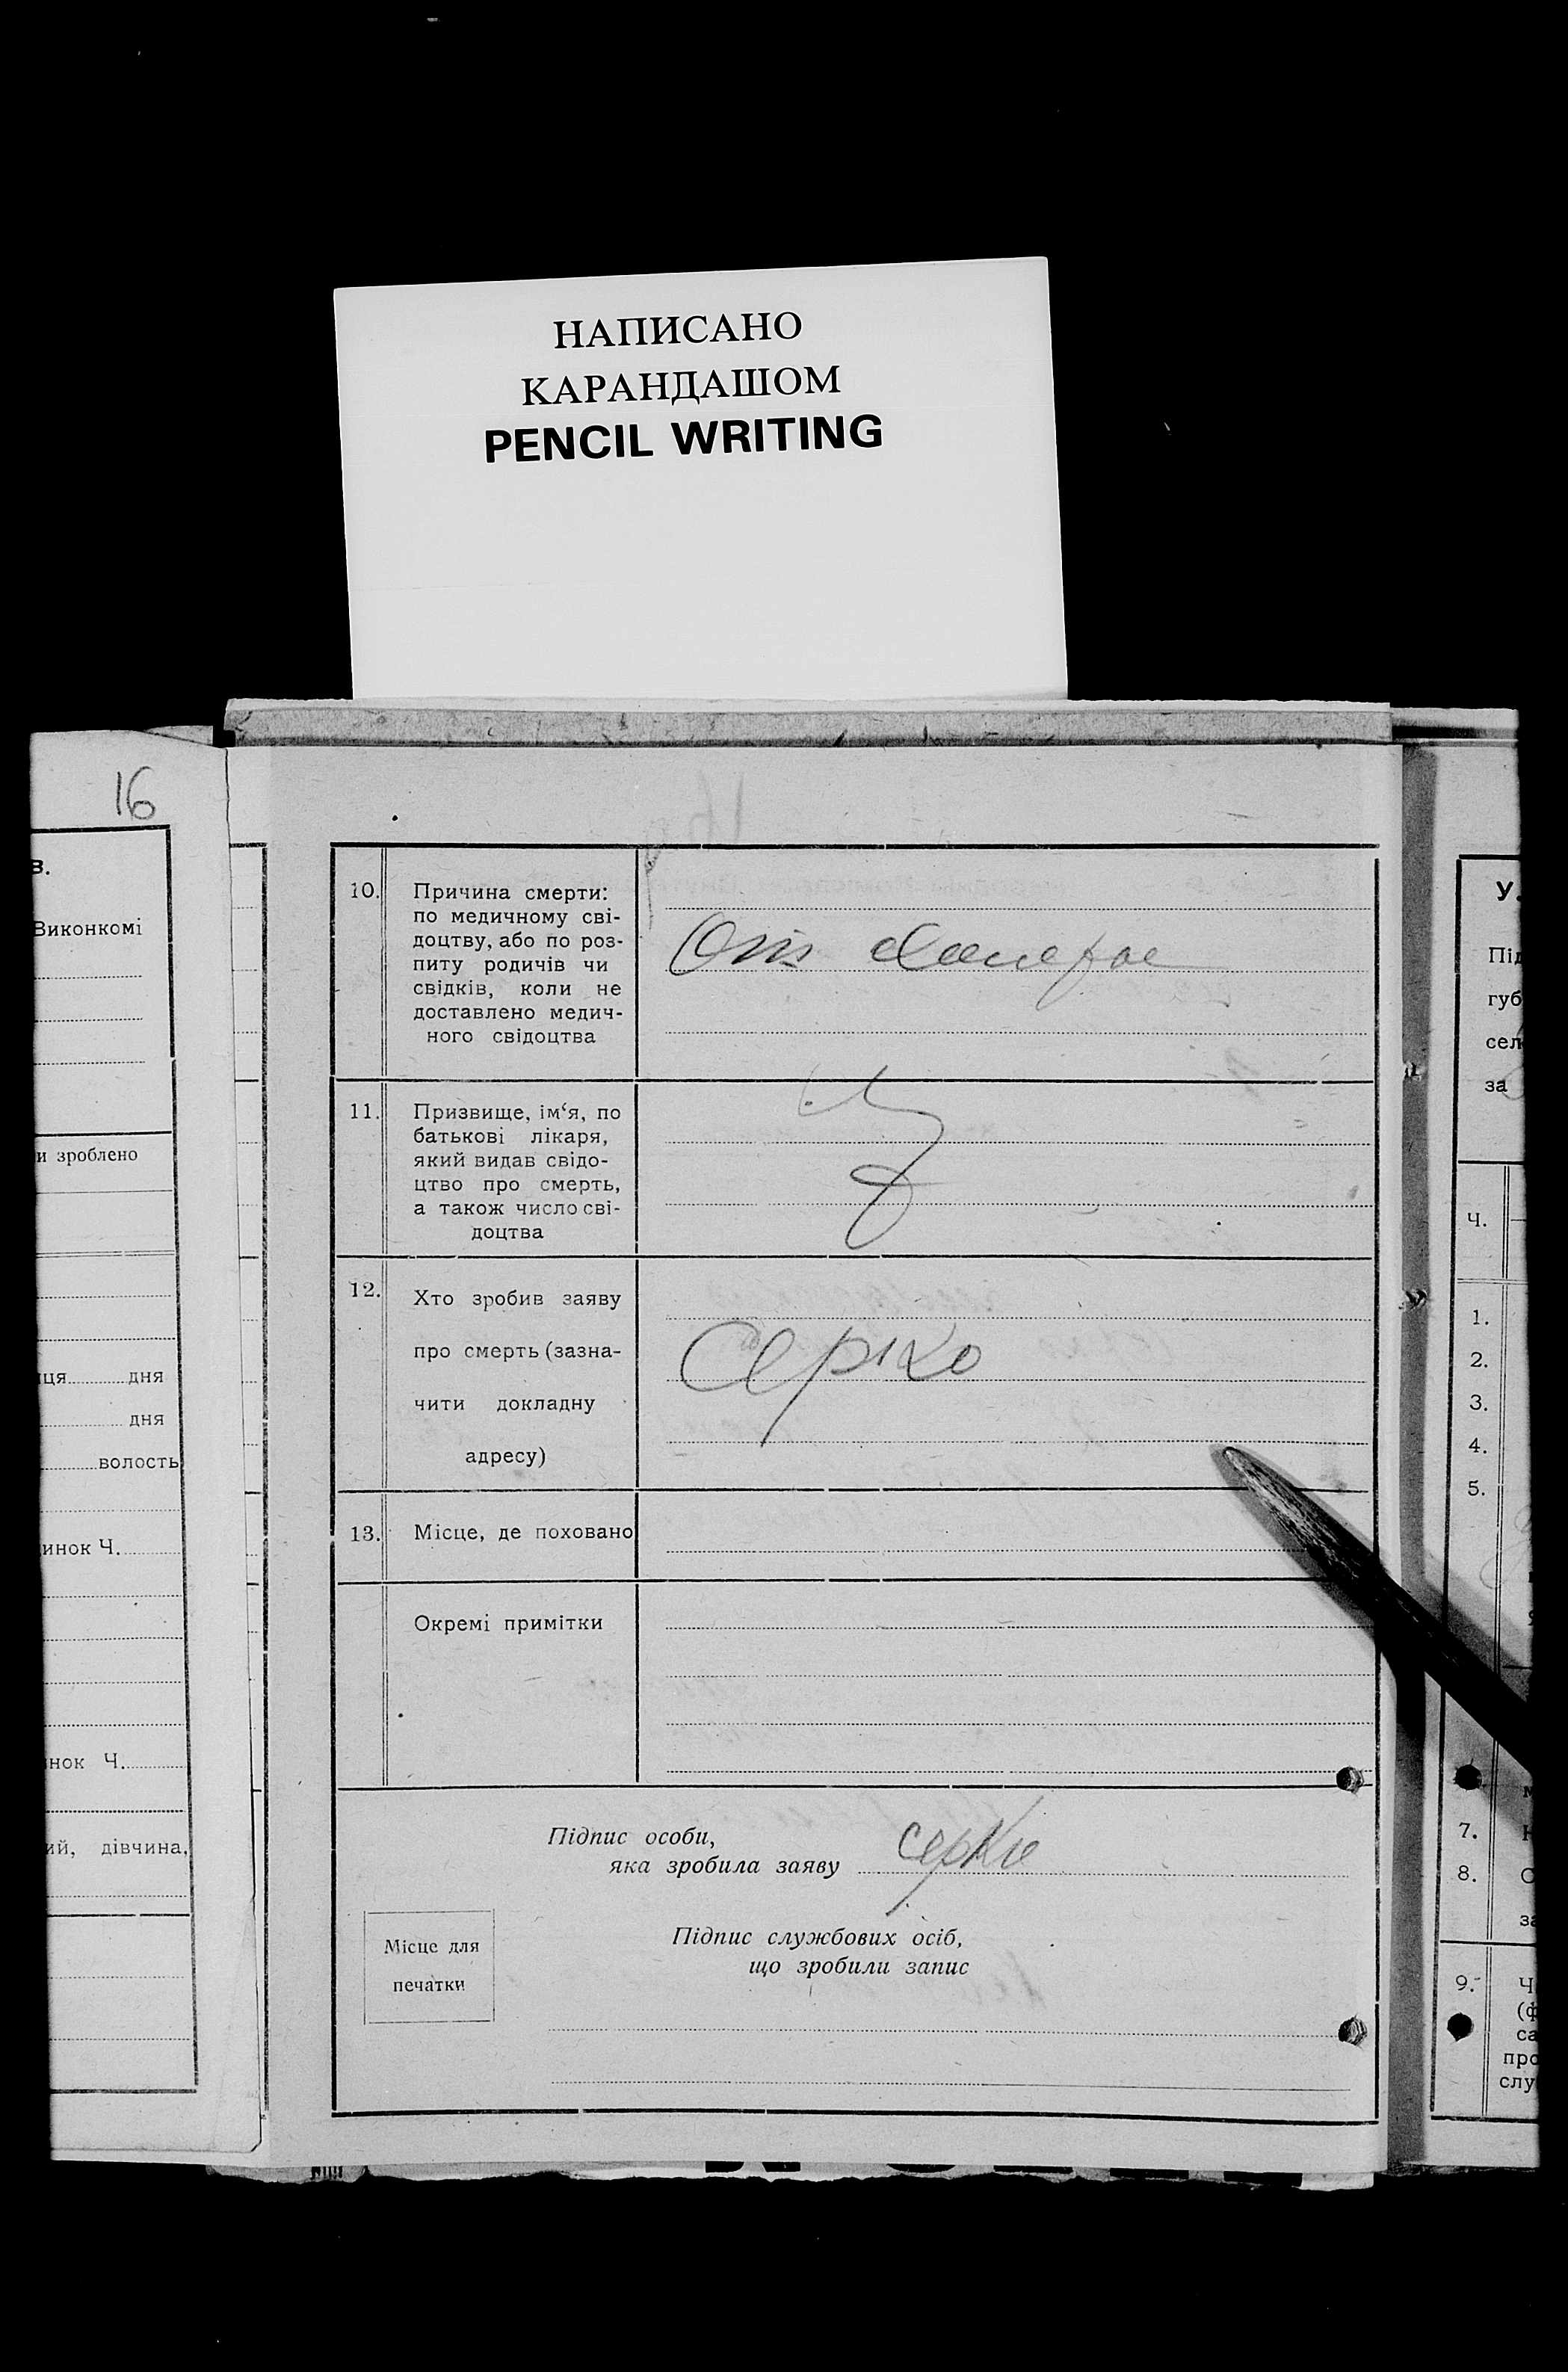 НАПИСАНО
КАРАНДАШОМ
PENCIL WRITING
16
В.
Виконкомі
и зроблено
ця дня
дня
волость
инок Ч.
нок Ч.
ий, дівчина,
10. Причина смерти:
по медичному сві-
доцтву, або по роз-
питу родичів чи
свідків, коли не
доставлено медич-
ного свідоцтва
От
11. Призвище, ім‘я, по
батькові лікаря,
який видав свідо-
цтво про смерть,
а також число сві-
доцтва
12. Хто зробив заяву
про смерть (зазна-
чити докладну
адресу)
Серко
13. Місце, де поховано
Окремі примітки
Підпис особи,
яка зробила заяву Серко
Місце для
печатки
Підпис службових осіб,
що зробили запис
У.
Під
губ
сел
за
Ч.
1.
2.
3.
4.
5.
7.
8.
за
9. Ч
(ф
са
про
слу